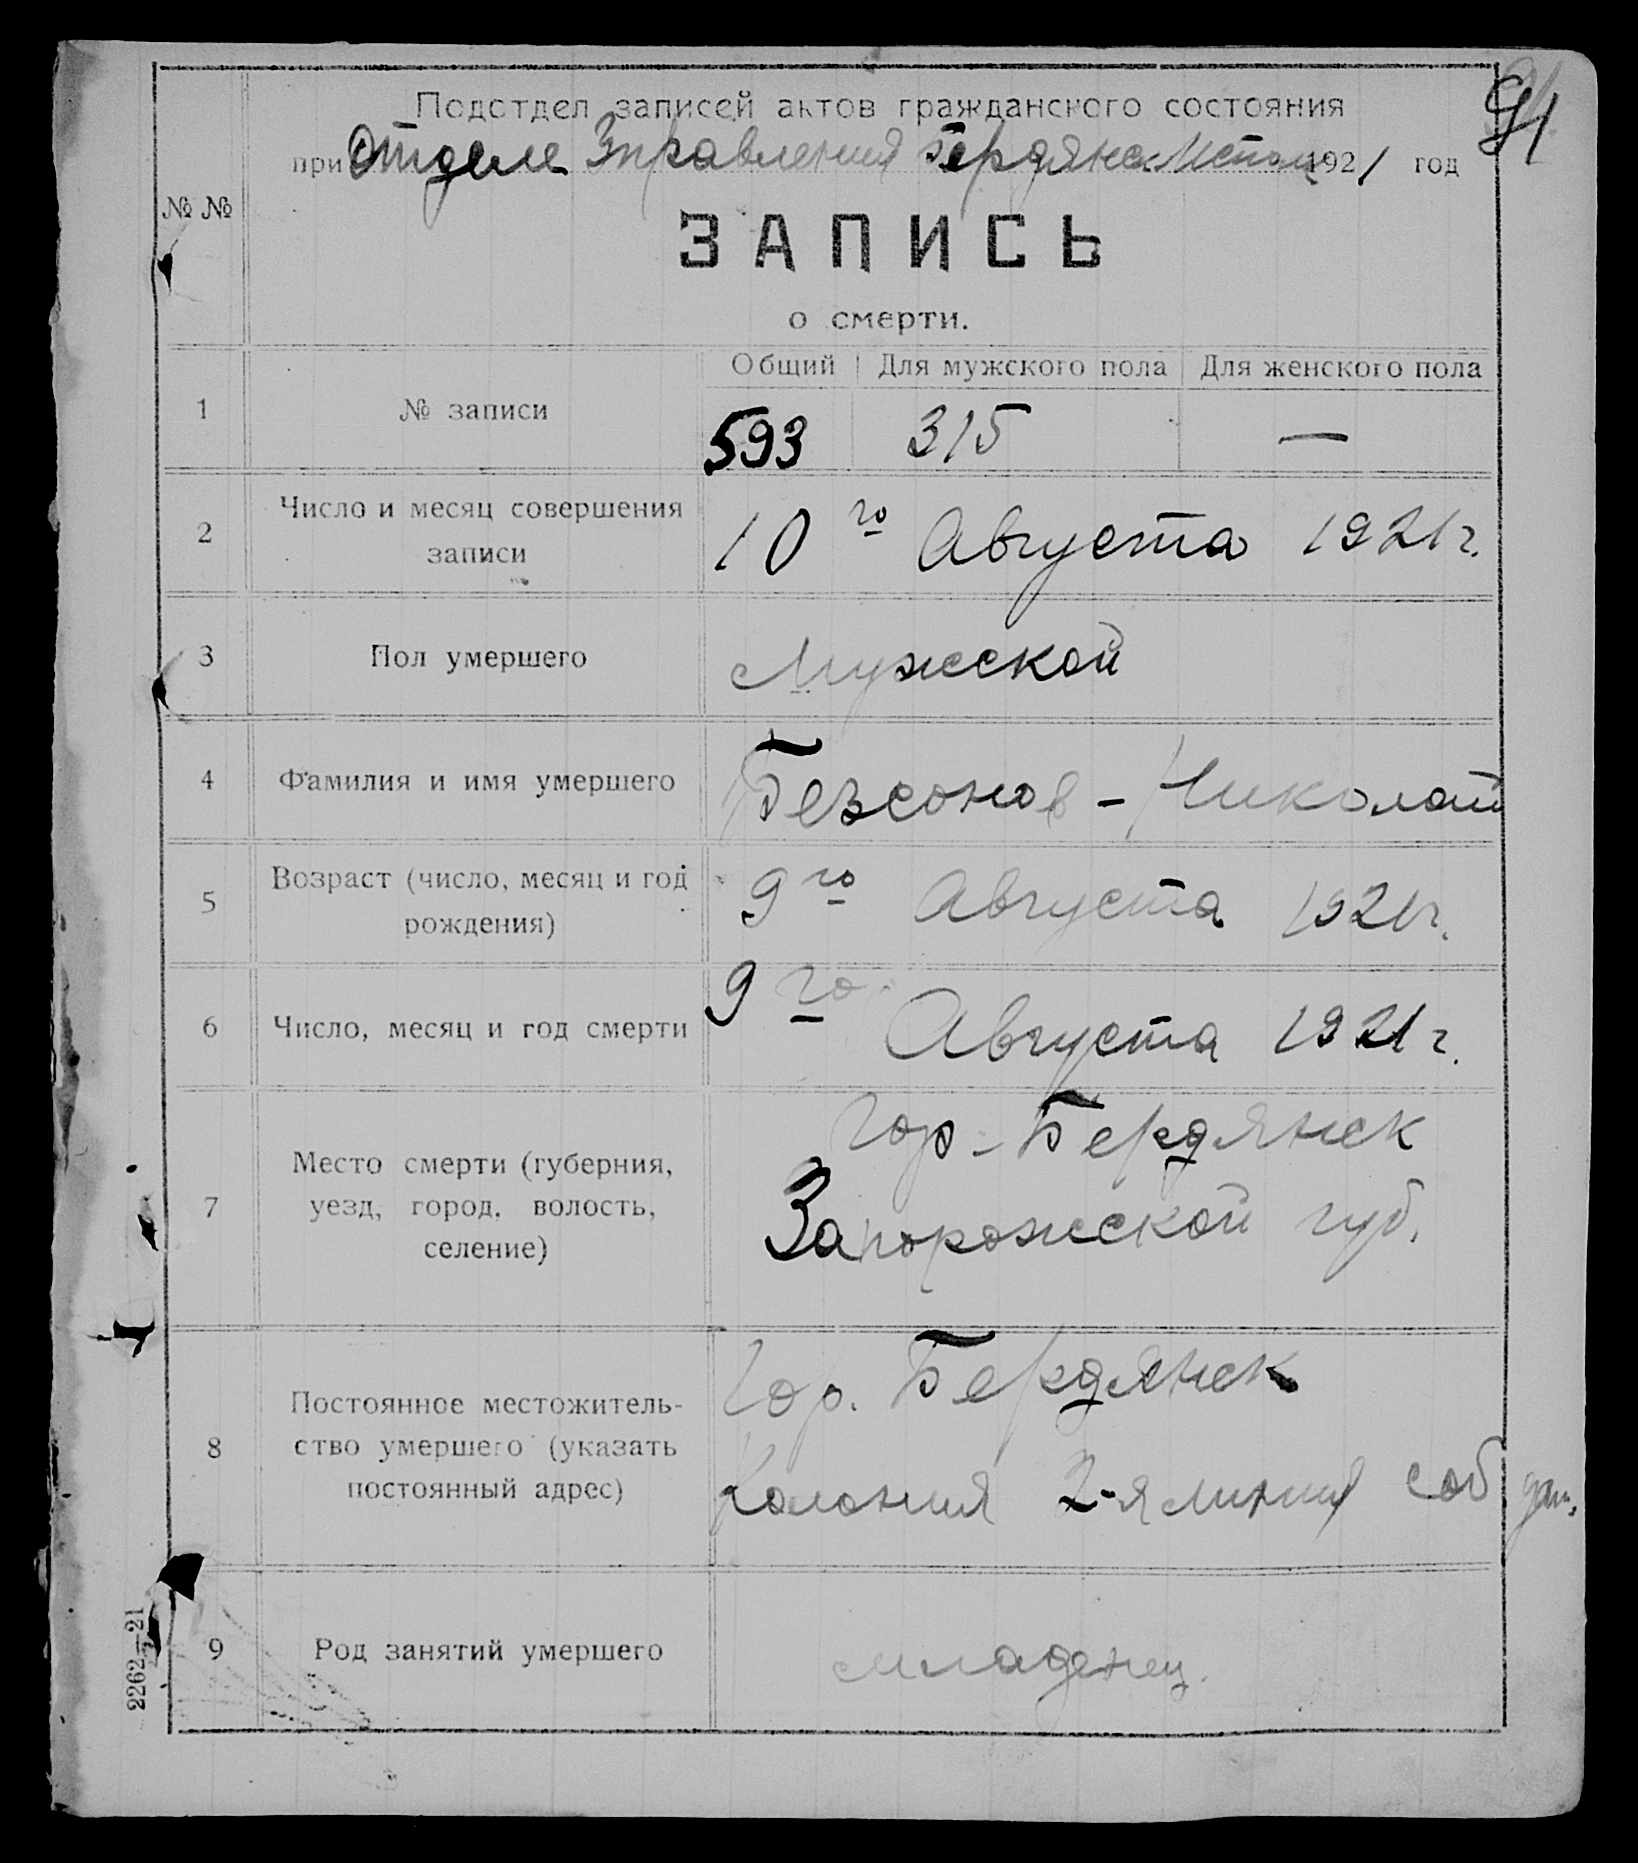 91
Подотдел записей актов гражданского состояния
при Отделе Управления Бердянск. Исполк 1921 год
№ №
ЗАПИСЬ
о смерти.
Общий Для мужского пола Для женского пола
1 № записи 593 315 —
2 Число и месяц совершения
записи 10го Августа 1921 г.
3 Пол умершего Мужской
4 Фамилия и имя умершего Безсонов - Николай
5 Возраст (число, месяц и год
рождения) 9го Августа 1921 г.
6 Число, месяц и год смерти 9го Августа 1921 г.
7 Место смерти (губерния,
уезд, город, волость,
селение)
Гор. Бердянск
Запорожской губ.
8 Постоянное местожитель-
ство умершего (указать
постоянный адрес)
Гор. Бердянск
Колония 2-я линия соб
9 Род занятий умершего младенец.
2262—21